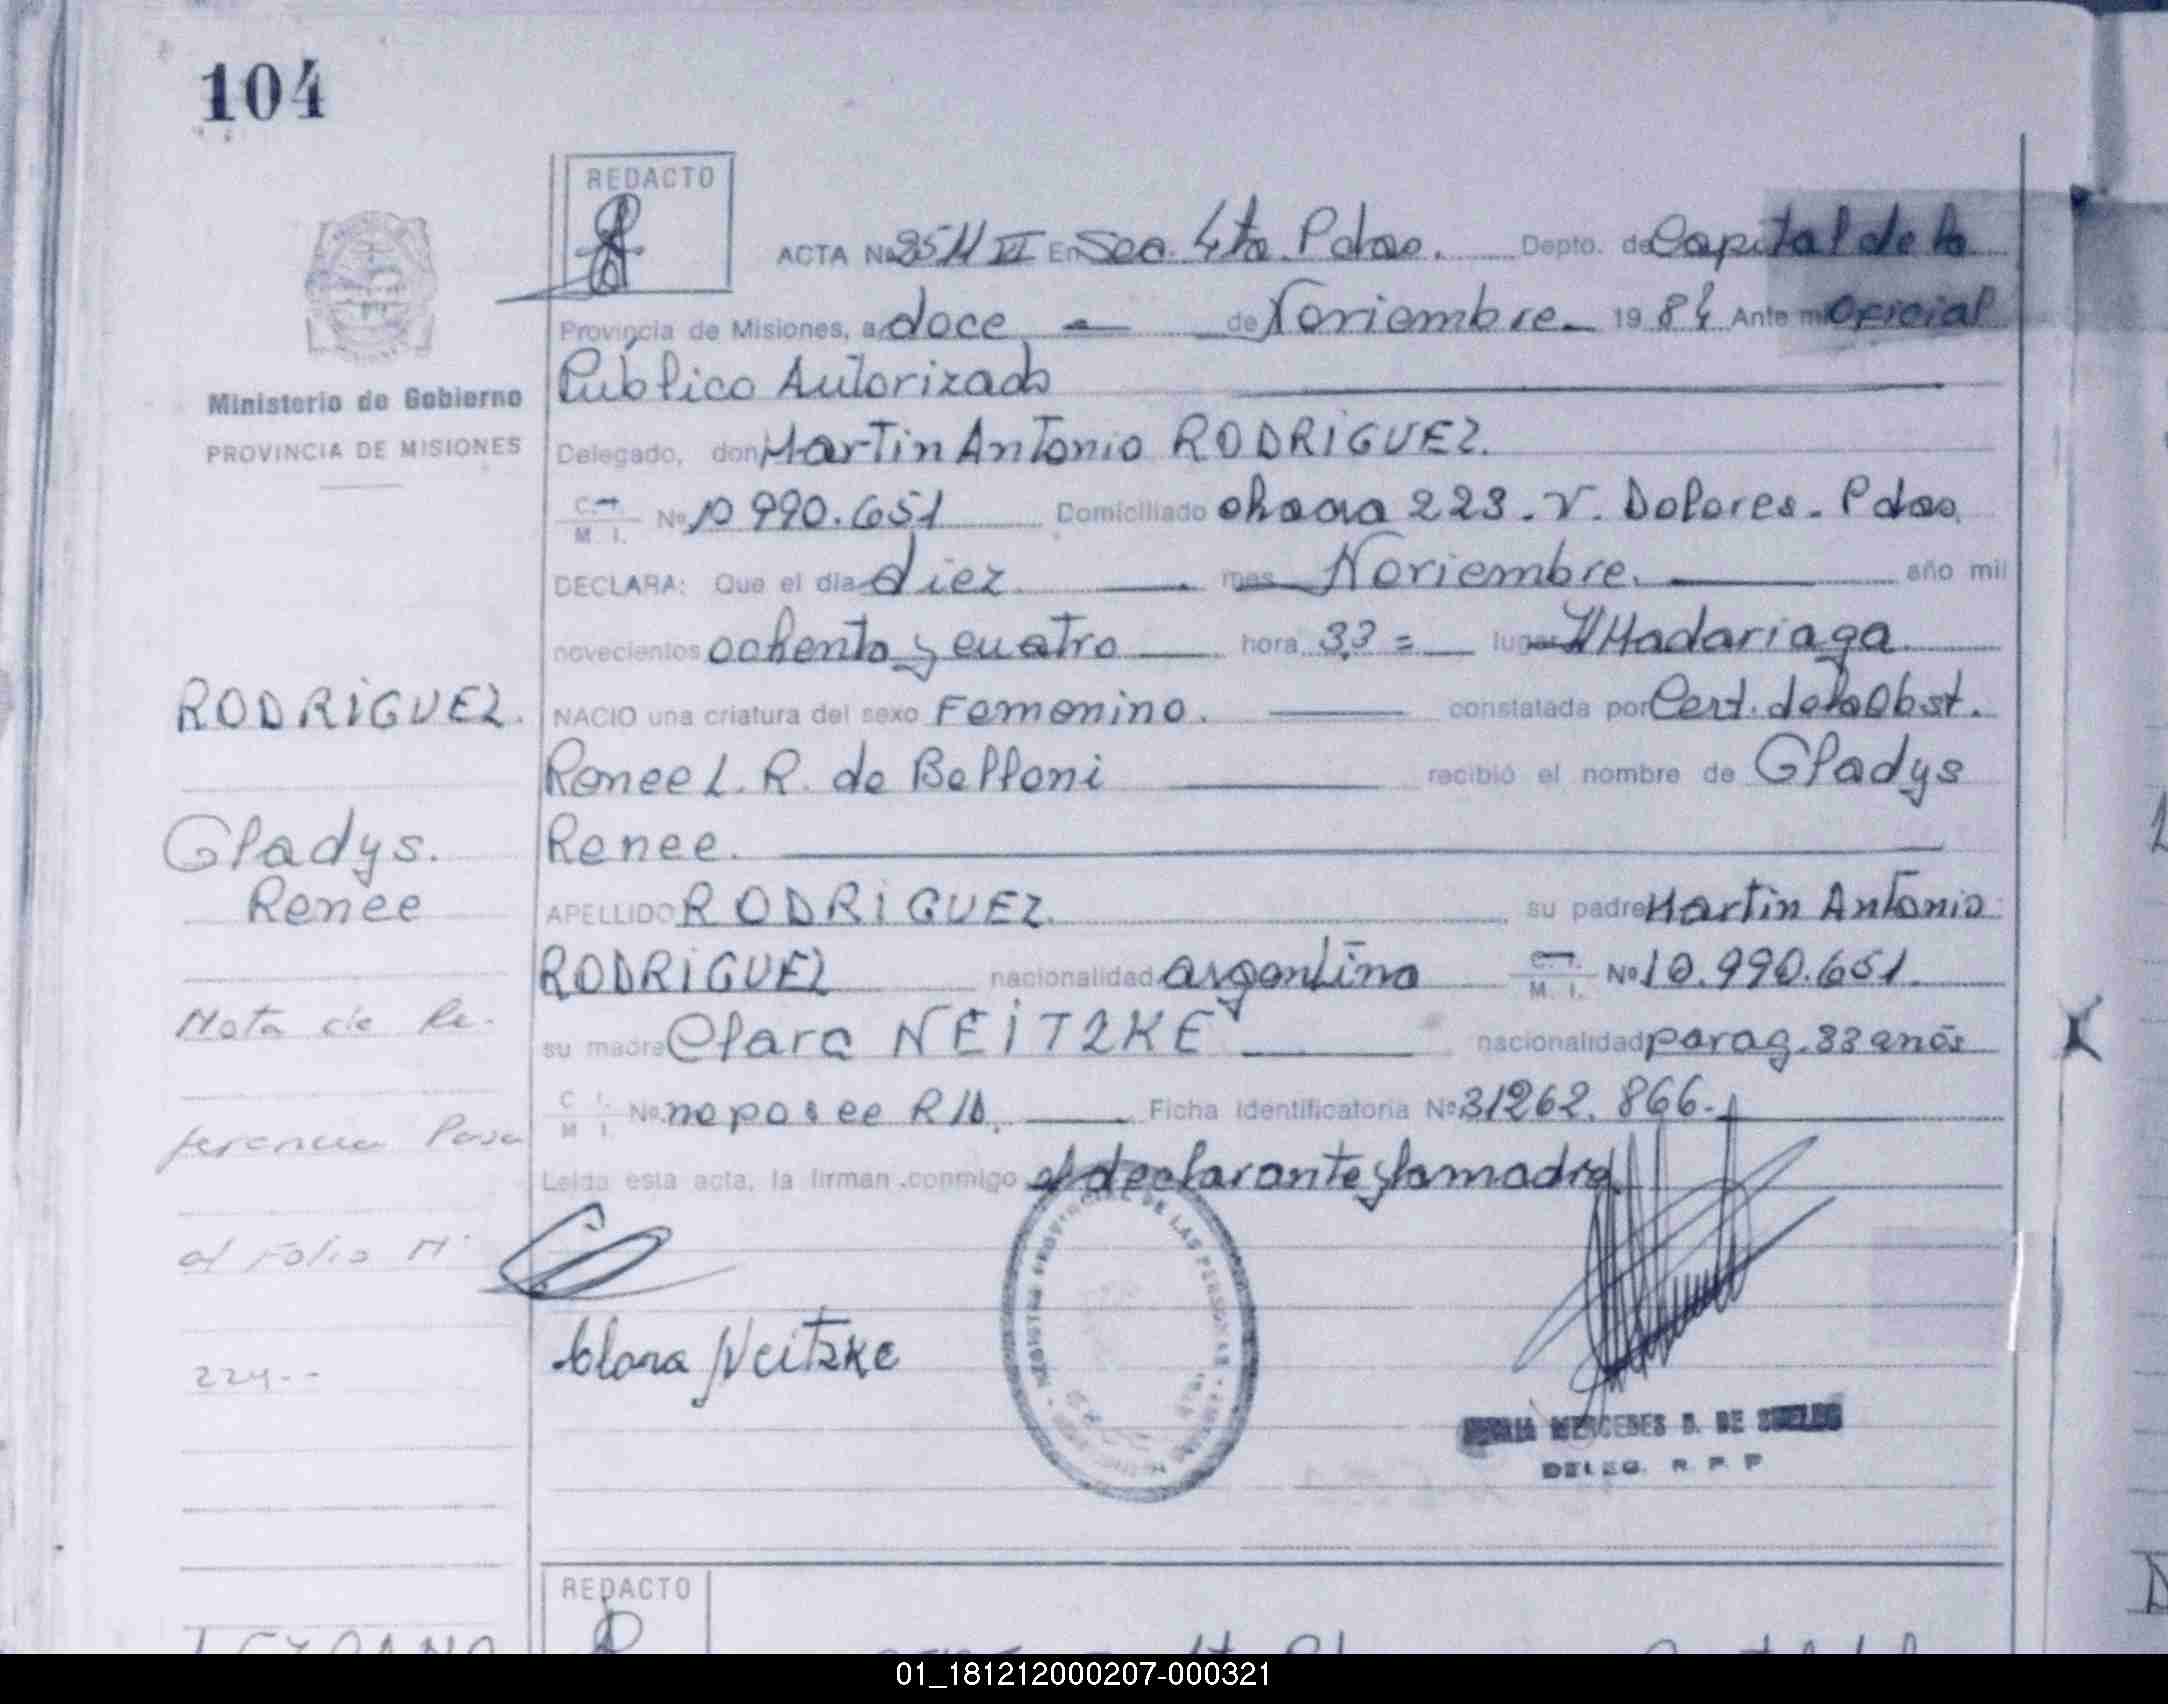 104
REDACTO
ACTA No 2511 VI En Sec. 4ta. Pdas. Depto. de Capital de la
Provincia de Misiones, a doce de Noviembre 1984 Ante mi Oficial
Público Autorizado
Ministerio de Gobierno
PROVINCIA DE MISIONES
Delegado, don Martin Antonio RODRIGUEZ.
C. I.
M. I. No 10 990.651 Domiciliado chacra 223. V. Dolores. Pdas.
DECLARA: Que el dia diez mes Noviembre. año mil
novecientos ochenta y cuatro hora lugar H Madariaga
RODRIGUEZ.
NACIO una criatura del sexo Femenino. constatada por Cert. de la Obst.
Renee L. R. de Belloni recibió el nombre de Gladys
Gladys.
Renee
Renee.
APELLIDO RODRIGUEZ su padre Martin Antonio
RODRIGUEZ nacionalidad argentina C. I.
M. I. No 10.990.651.
Nota de Re-
su madre Clara NEITZKE nacionalidad parag. 33 años
C I.
M I. No. no posee R/D. Ficha Identificatoria No 31262.866.
ferencia Pasa
Leida esta acta, la firman conmigo el declarante y la madre
al Folio Nº
224--
Clara Neitzke
MERCEDES B. DE
DELEG. R. P. P
REDACTO
01_181212000207-000321